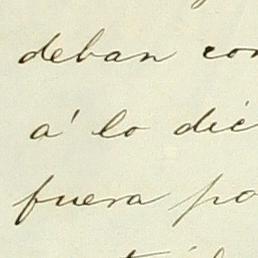 deban con
á lo dic
fuera po